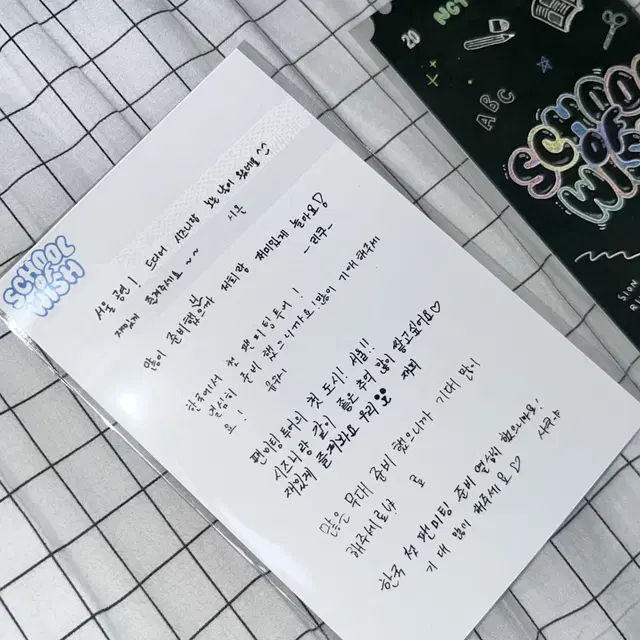 SCHOOL
OF
WISH
서울 공연! 드디어 시즈니랑 보는 날이 왔네요
재밌게 즐겨주세요 ~~
많이 준비했으니까 재미있게 놀아요♡
한국에서 첫 팬미팅 투어!
열심히 준비 했으니까요. 많이 기대해주세
요! 유우시
팬미팅 투어의 첫 도시! 서울!!
시즈니랑 같이 좋은 추억 많이 쌓고싶어요♡
재밌게 즐겨봐요 우리 재희
많은 무대 준비 했으니까 기대 많이
해주세요
한국 첫 팬미팅 준비 열심히 했으니까요!
기대 많이 해주세요 ♡ 사쿠야
20
NCT
ABC
SCHOOL
OF
WISH
SION